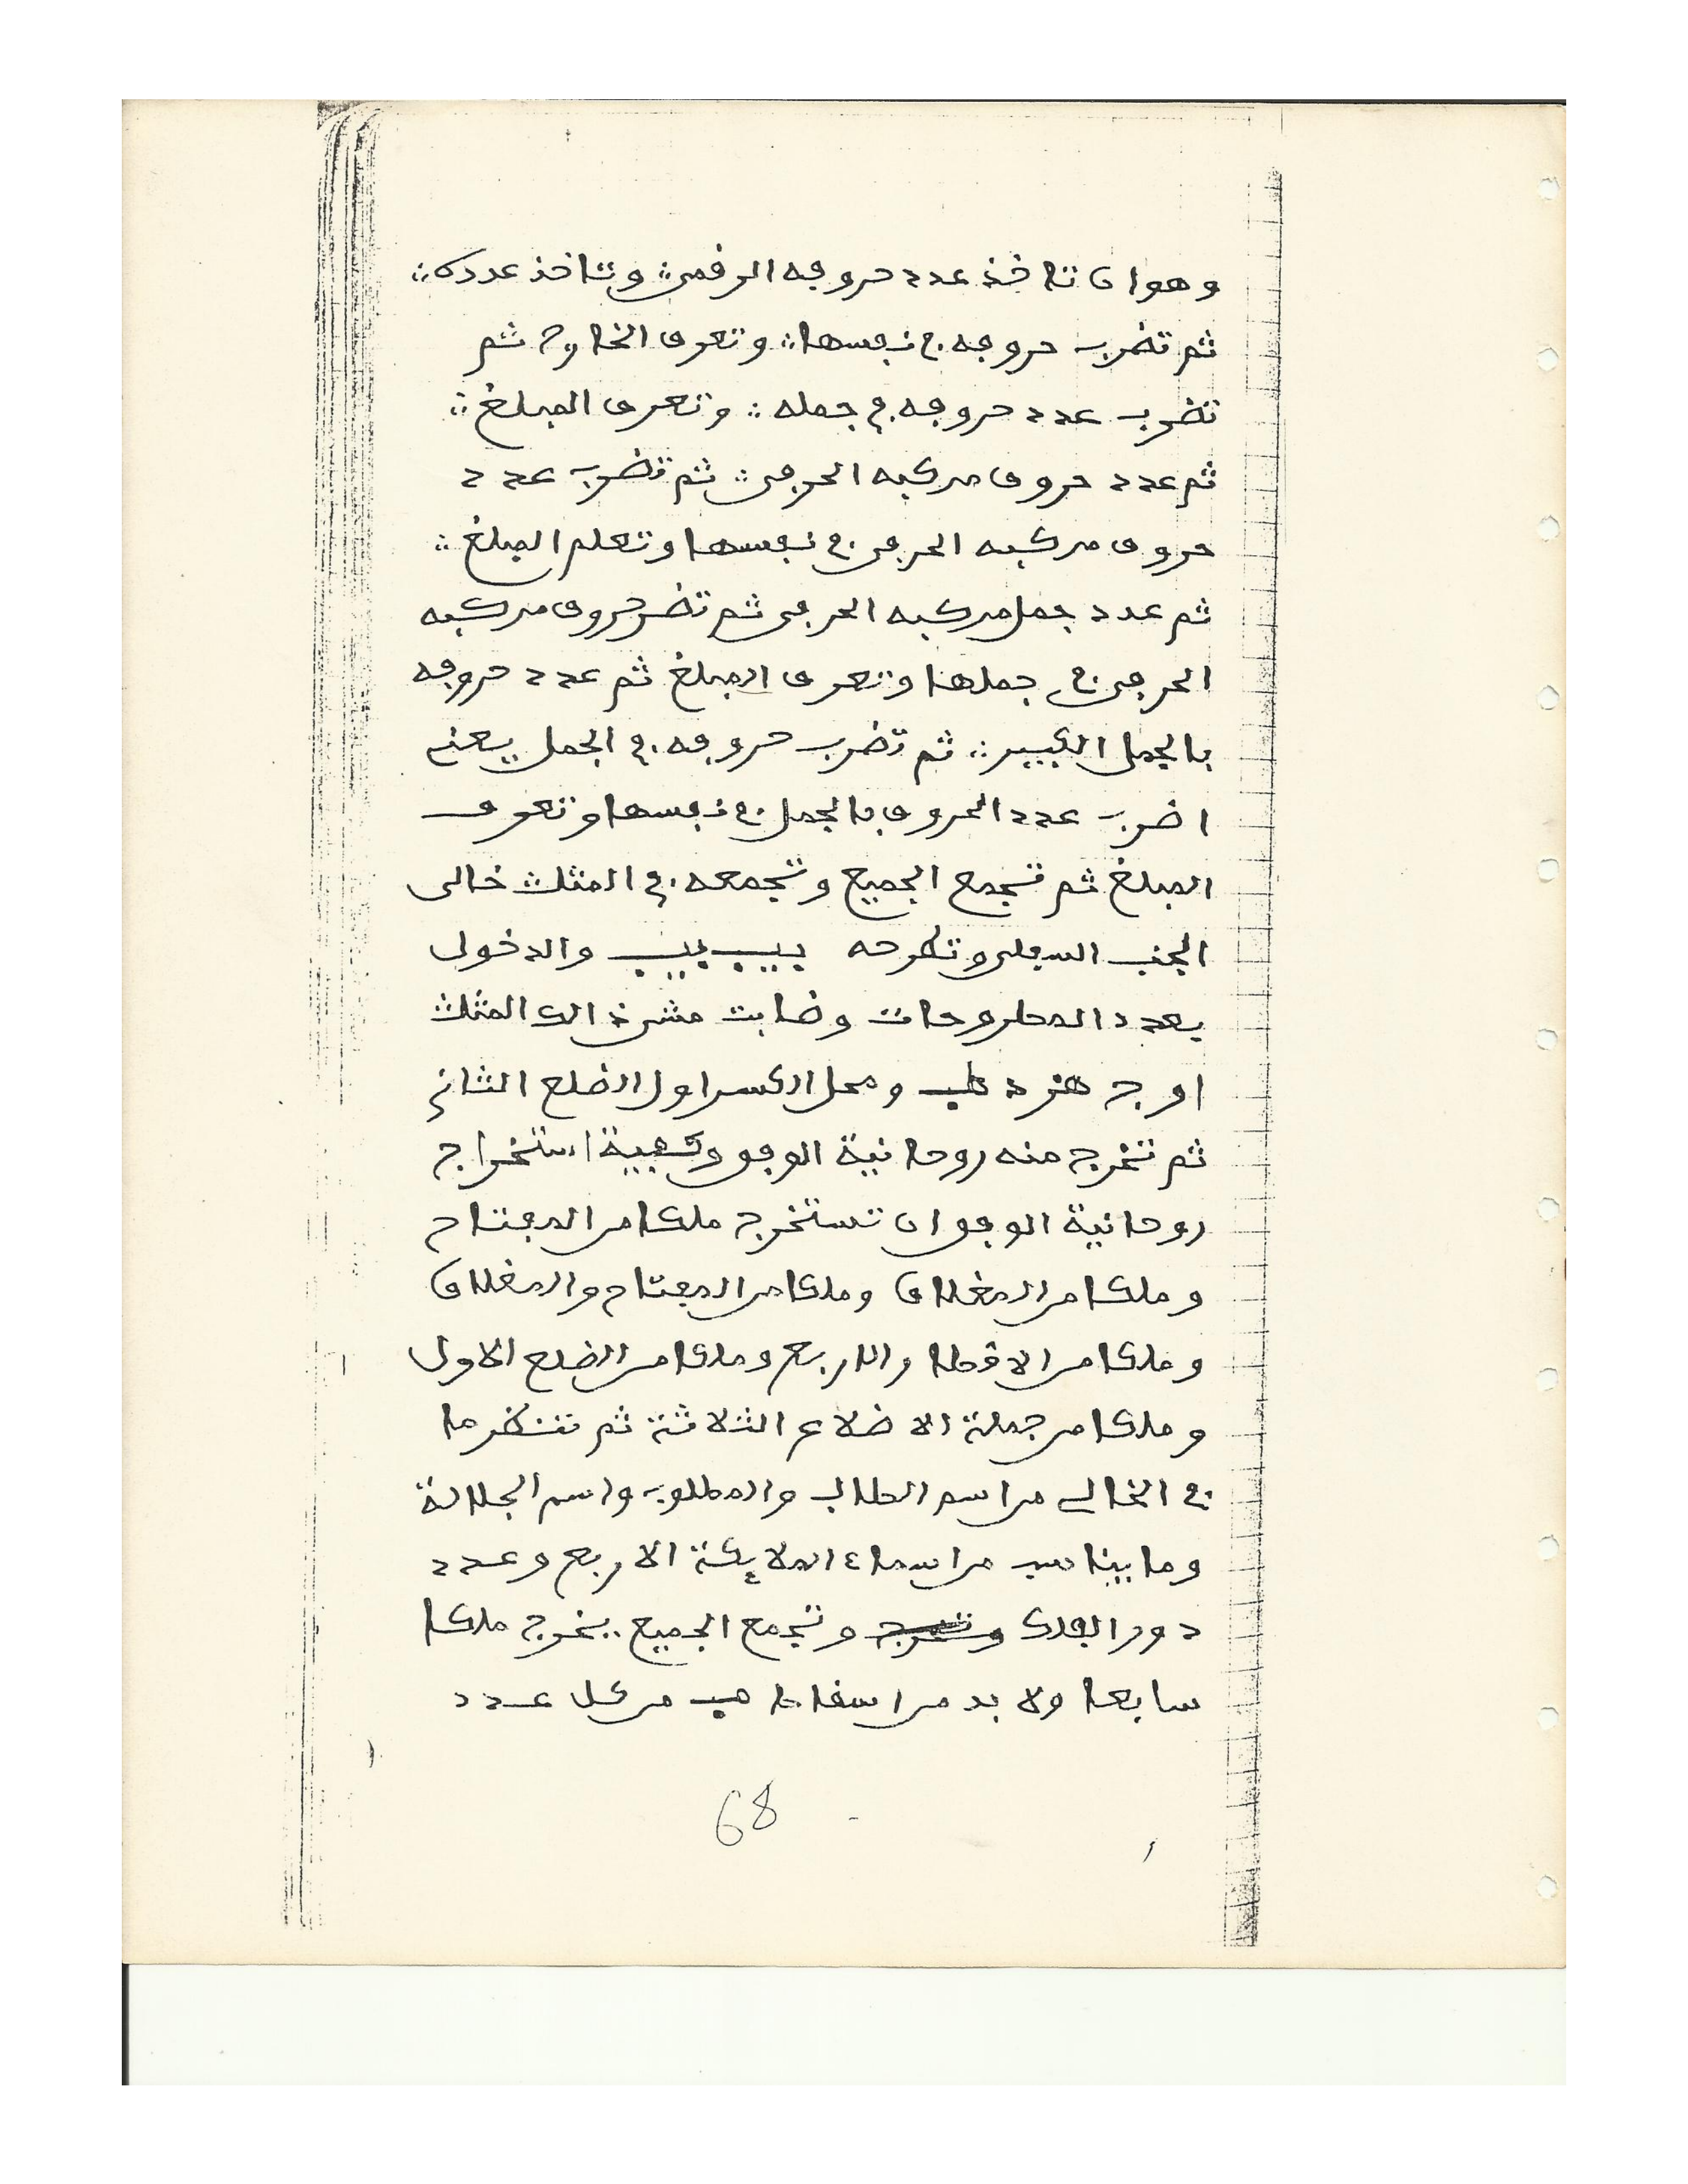 وهو ان تاخذ عدد حروفه الرقمي ؞ وتاخذ عدده ؞
ثم تضرب حروفه في نفسها ؞ وتعرف الخارج ثم
تضرب عدد حروفه في جمله ؞ وتعرف المبلغ ؞
ثم عدد حروف مركبه الحرفي ؞ ثم تضرب عدد
حروف مركبه الحرفي في نفسها وتعلم المبلغ ؞
ثم عدد جمل مركبه الحرفي ثم تضرب حروف مركبه
الحرفي في جملها وتعرف المبلغ ثم عدد حروفه
بالجمل الكبير ؞ ثم تضرب حروفه في الجمل يعني
اضرب عدد الحروف بالجمل في نفسها وتعرف
المبلغ ثم تجمع الجميع وتجمعه في المثلث خالى
الجنب السفلى وتطرحه يب يب والدخول
بعدد المطروحات وضابت مشي ذالك المثلث
اوج هز د طب ومحل الكسر اول الضلع الثاني
ثم تخرج منه روحانية الوفق وكيفية استخراج
روحانية الوفق ان تستخرج ملكا من المفتاح
وملكا من المغلاق وملكا من المفتاح والمغلاق
وملكا من الاقطار الاربع وملكا من الضلع الاول
وملكا من جملة الاضلاع الثلاثة ثم تنظر ما
في الخالي من اسم الطالب والمطلوب واسم الجلالة
وما يناسب من اسماء الملايكة الاربع وعدد
دور الفلك وتجمع الجميع يخرج ملكا
سابعا ولا بد من اسقاط من كل عدد
68